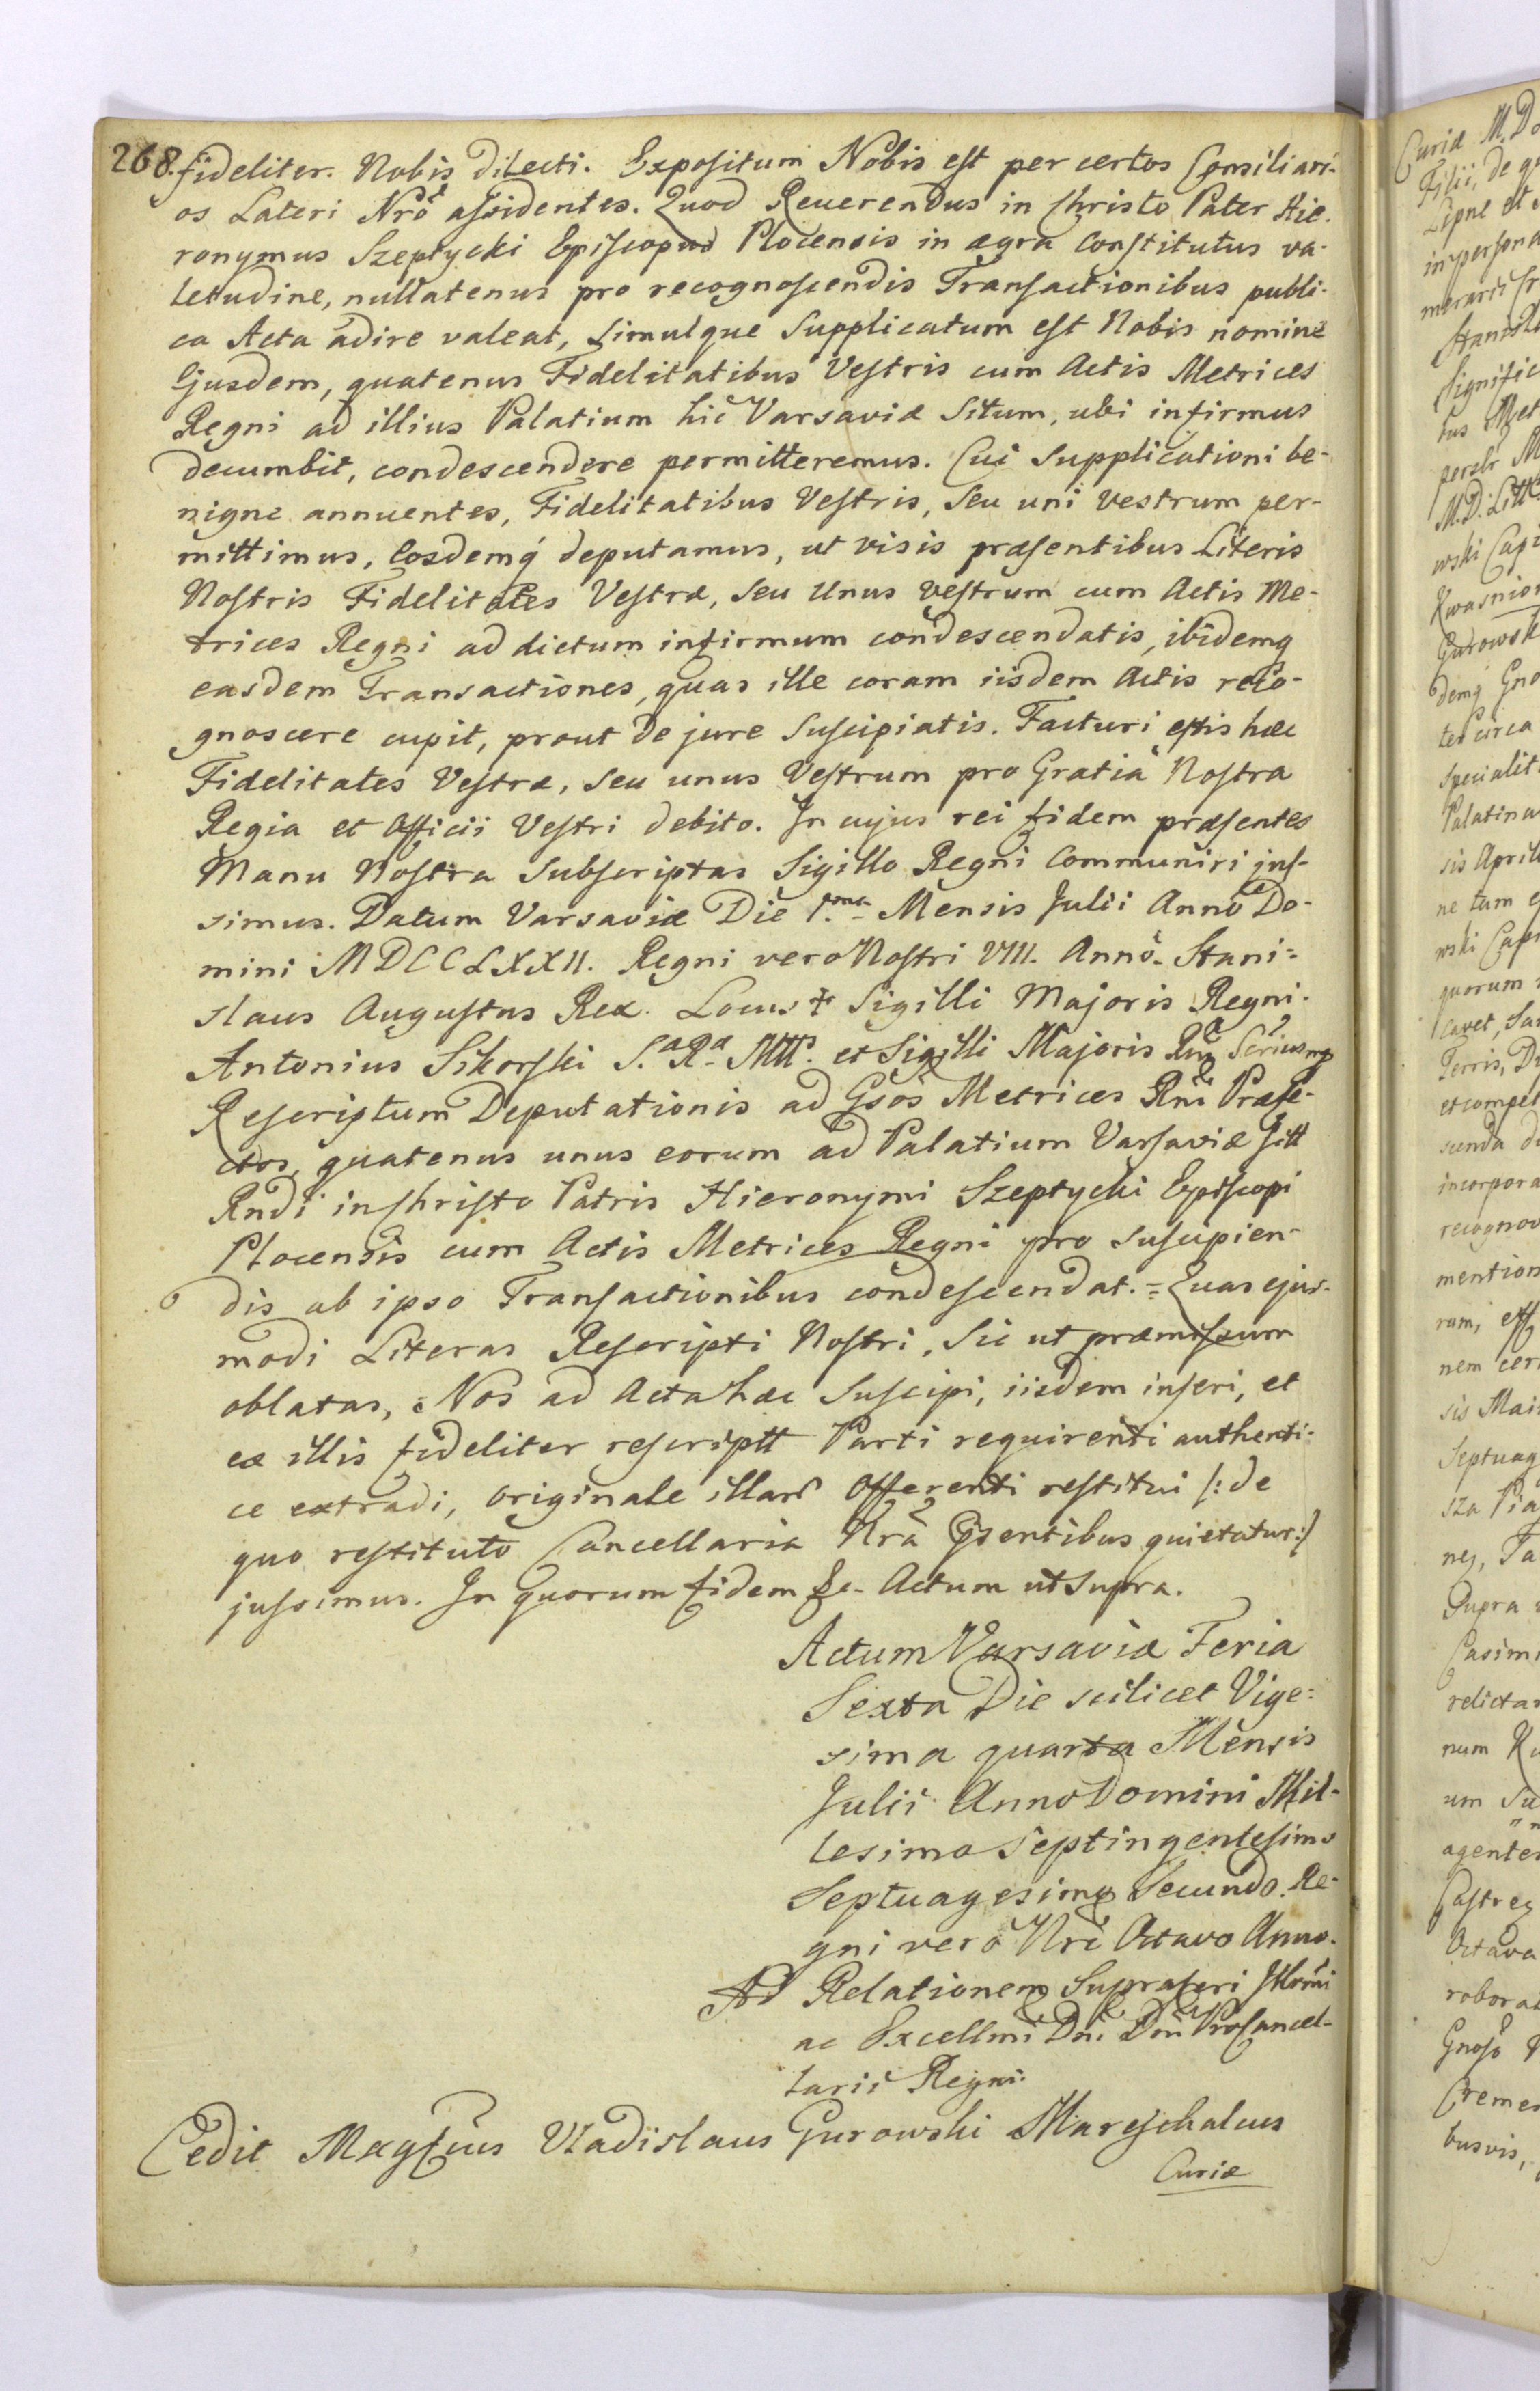 268. fideliter. Nobis dilecti. Expositum Nobis est per certos Consiliari-
os Lateri Nrõ assidentes. Quod Reuerendus in Christo Pater Hie-
ronymus Szeptycki Episcopus Plocensis in ægra Constitutus va-
letudine, nullatenus pro recognoscendis Transactionibus publi-
ca Acta adire valeat, Simulque Supplicatum est Nobis nomine
Ejusdem, quatenus Fidelitatibus Vestris cum Actis Metrices
Regni ad illius Palatium hic Varsaviæ Situm, ubi infirmus
decumbit, condescendere permitteremus. Cui Supplicationi be-
nigne annuentes, Fidelitatibus Vestris, Seu uni Vestrum per-
mittimus, Eosdemq́ deputamus, ut visis præsentibus Literis
Nostris Fidelitates Vestræ, seu Unus Vestrum cum Actis Me-
trices Regni ad dictum infirmum condescendatis, ibidemq
easdem Transactiones, quas ille coram iisdem Actis reco-
gnoscere cupit, prout de jure Suscipiatis. Facturi estis hæc
Fidelitates Vestræ, seu unus Vestrum pro Gratia Nostra
Regia et Officii Vestri debito. In cujus rei fidem præsentes
Manu Nostra Subscriptas Sigillo Regni Communiri jus-
simus. Datum Varsaviæ Die 1.ma Mensis Julii Anno Do-
mini MDCCLXXII. Regni vero Nostri VIII. Anno. Stani=
slaus Augustus Rex. Locus ☩ Sigilli Majoris Regni.
Antonius Sikorski S.a R.a Mtt.s et Sigilli Majoris Rni Scrius mp
Rescriptum Deputationis ad Gsos Metrices Rni Præfe-
ctos, quatenus unus eorum ad Palatium Varsaviæ Sitt
Rndi in Christo Patris Hieronymi Szeptycki Episcopi
Plocensis cum Actis Metrices Regni pro suscipien-
dis ab ipso Transactionibus condescendat. = Quas ejus-
modi Literas Rescripti Nostri, Sic ut præmissum
oblatas, Nos ad Acta hæc Suscipi, iisdem inseri, et
ex illis fideliter rescriptt Parti requirenti authenti-
ce extradi, Originale illarũ Offerenti restitui /: de
quo restituto Cancellaria Nrã Gsentibus quietatur :/
jussimus. In quorum fidem &c. Actum ut Supra.
Actum Varsaviæ Feria
Sexta Die scilicet Vige=
sima quarta Mensis
Julii Anno Domini Mil-
lesimo Septingentesimo
Septuagesimo Secundo. Re-
gni vero Nri Octavo Anno.
Ad Relationem Suprascri Illrmi
ac Excellmi Dni Dni ProCancel-
larii Regni.
Cedit Magfcus Vladislaus Gurowski Mareschalcus
Curiæ
Curiæ M. D
Filii, de
Lipne et
in persona
Signific
bus Met
M.D. Litt
wski Capi
Gurowsk
demq Gno
ter circa
specialit
Palatina
sis April
ne tum
wski Cap
quorum
cavet,
Terris,
et compet
incorpora
recognov
mention
rum,
nem
sis Mai
Septuag
sza
Supra
Casimi
relicta
num
um
agente
Castre
Octava
robora
Gnoso
busvis,